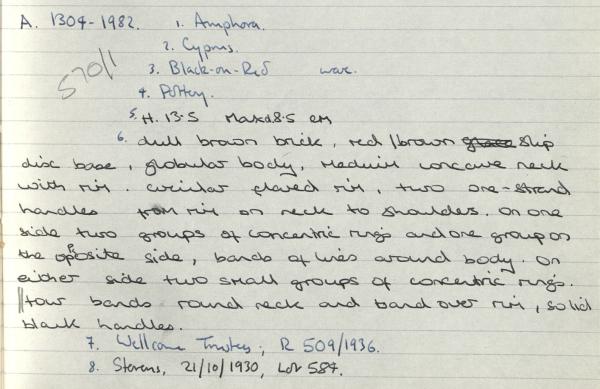 A. 1304-1982. 1. Amphora.
2. Cyprus.
3. Black-on-Red ware.
4. Pottery.
5. H. 13.5 Max d 8.5 cm
6. dull brown brick, red/brown slip
disc base, globular body, medium concave neck
with rim. circular flared rim, two one-strand
handles from rim on neck to shoulders. On one
side two groups of concentric rings and one group on
the opposite side, bands of lines around body. On
either side two small groups of concentric rings.
four bands round neck and band over rim, solid
black handles.
7. Wellcome Trustees; R 509/1936.
8. Stevens, 21/10/1930, Lot 584.